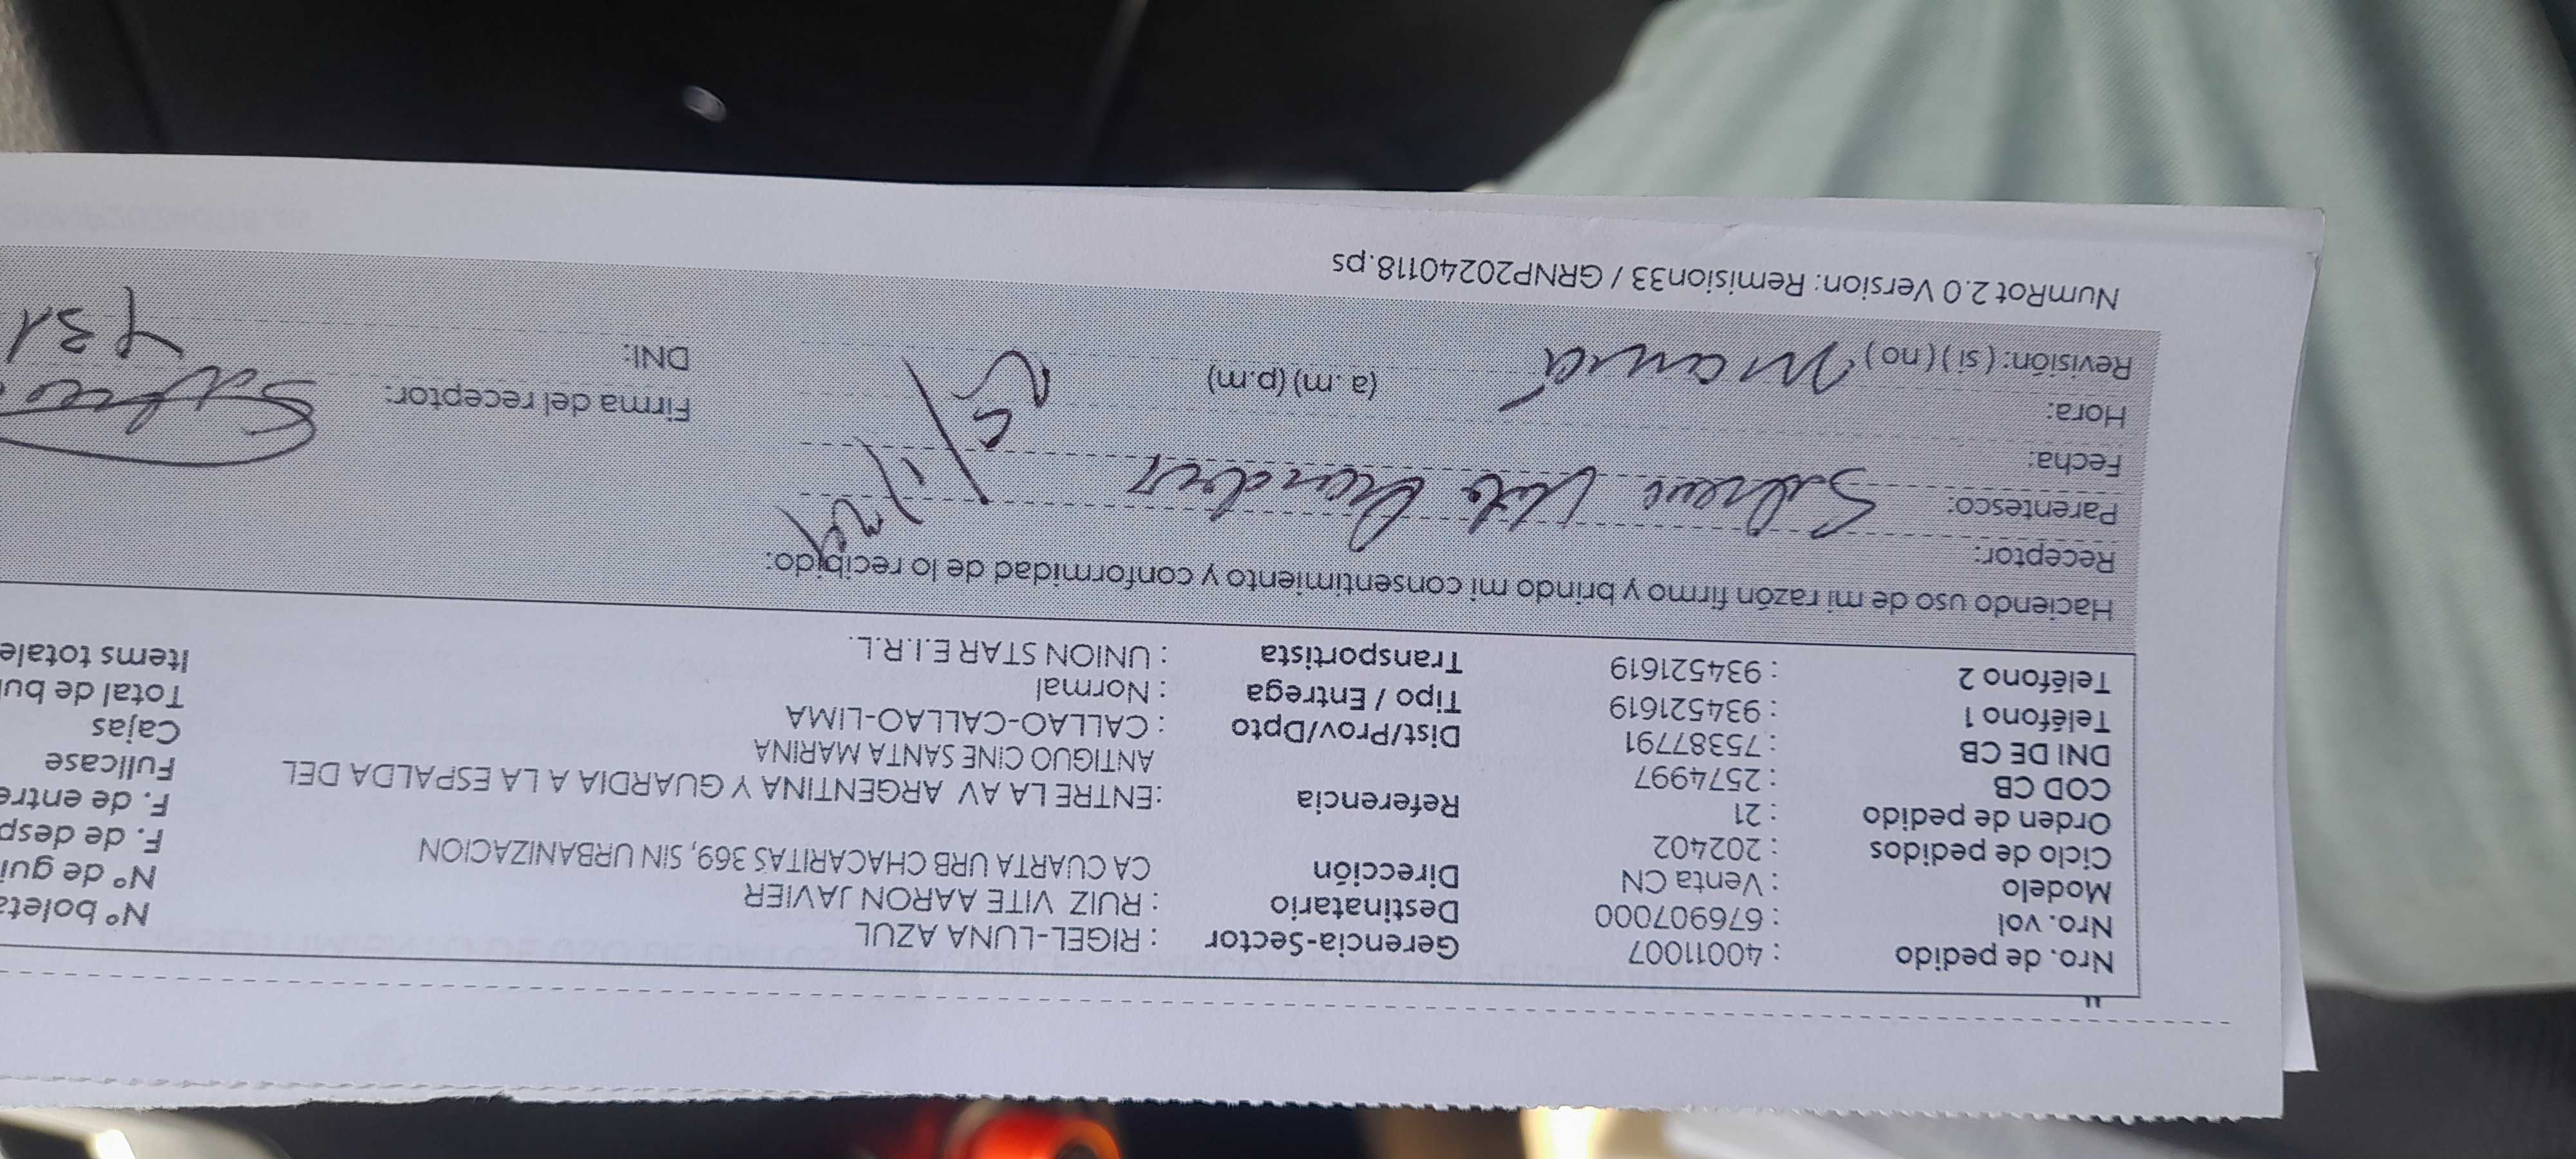 Nro. de pedido : 40011007 Gerencia-Sector : RIGEL-LUNA AZUL Nº boleta
Nro. vol : 676907000 Destinatario : RUIZ VITE AARON JAVIER Nº de gui
Modelo : Venta CN Dirección CA CUARTA URB CHACARITAS 369, SIN URBANIZACION F. de desp
Ciclo de pedidos : 202402 F. de entre
Orden de pedido : 21 Referencia :ENTRE LA AV ARGENTINA Y GUARDIA A LA ESPALDA DEL Fullcase
COD CB : 2574997 ANTIGUO CINE SANTA MARINA Cajas
DNI DE CB : 75387791 Dist/Prov/Dpto : CALLAO-CALLAO-LIMA Total de bu
Teléfono 1 : 934521619 Tipo / Entrega : Normal Items totale
Teléfono 2 : 934521619 Transportista : UNION STAR E.I.R.L.
Haciendo uso de mi razón firmo y brindo mi consentimiento y conformidad de lo recibido:
Receptor:
Parentesco: Vite
Fecha:
Hora: Firma del receptor:
Revisión: ( si ) ( no ) mamá (a .m) (p.m) DNI:
NumRot 2.0 Version: Remision33 / GRNP20240118.ps